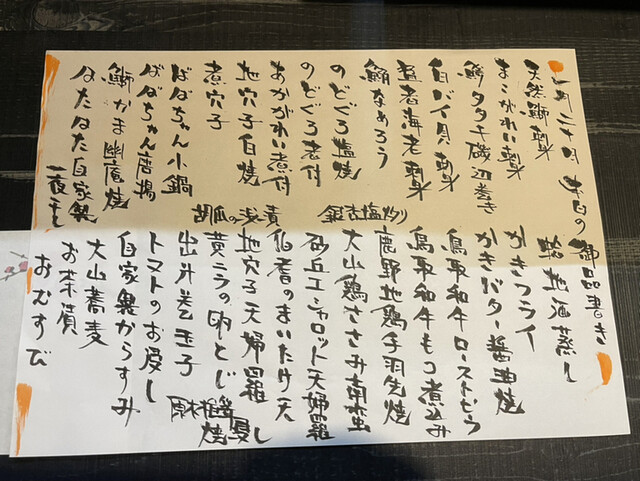 一月二十日 本日の御品書き
天然鰤刺身
まこがれい刺身
鯵タタキ磯辺巻き
白バイ貝刺身
猛者海老刺身
鰯なめろう
のどぐろ塩焼
のどぐろ煮付
あかがれい煮付
地穴子白焼
煮穴子
ばばちゃん小鍋
ばばちゃん唐揚
鰤かま幽庵焼
はたはた自家製一夜干し
蛤地酒蒸し
かきフライ
かきバター醤油焼
鳥取和牛ローストビーフ
鳥取和牛もつ煮込み
鹿野地鶏手羽先焼
大山鶏ささみ南蛮
銀杏塩炒り
砂丘エシャロット天婦羅
伯耆のまいたけ天
地穴子天婦羅
胡瓜の浅漬
黄ニラの卵とじ
出汁巻玉子
原木椎茸焼
トマトのお浸し
自家製からすみ
大山蕎麦
お茶漬
おむすび